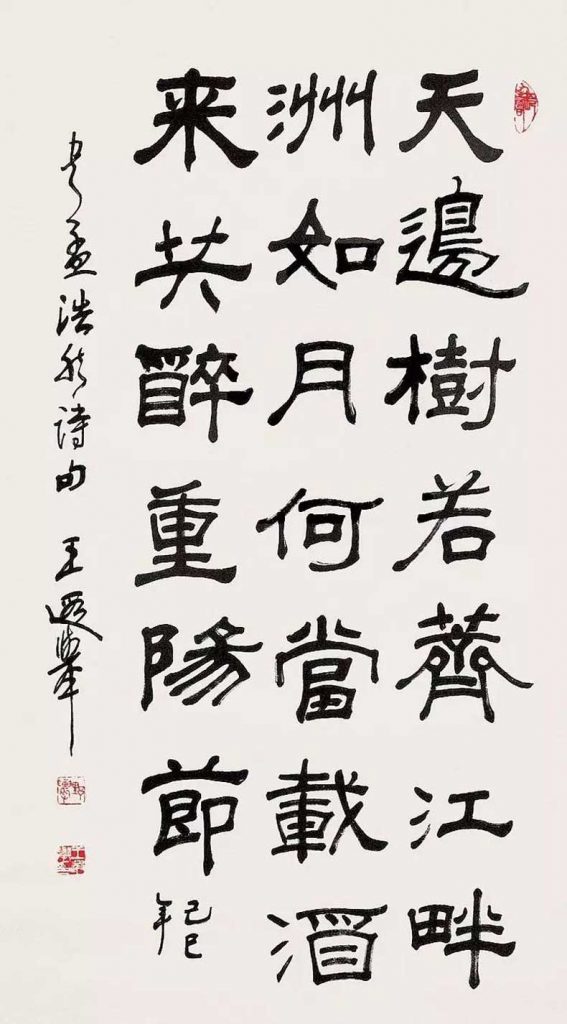 天邊樹若薺江畔
洲如月何當載酒
来共醉重陽節
己巳年
書孟浩然詩句 王遐舉